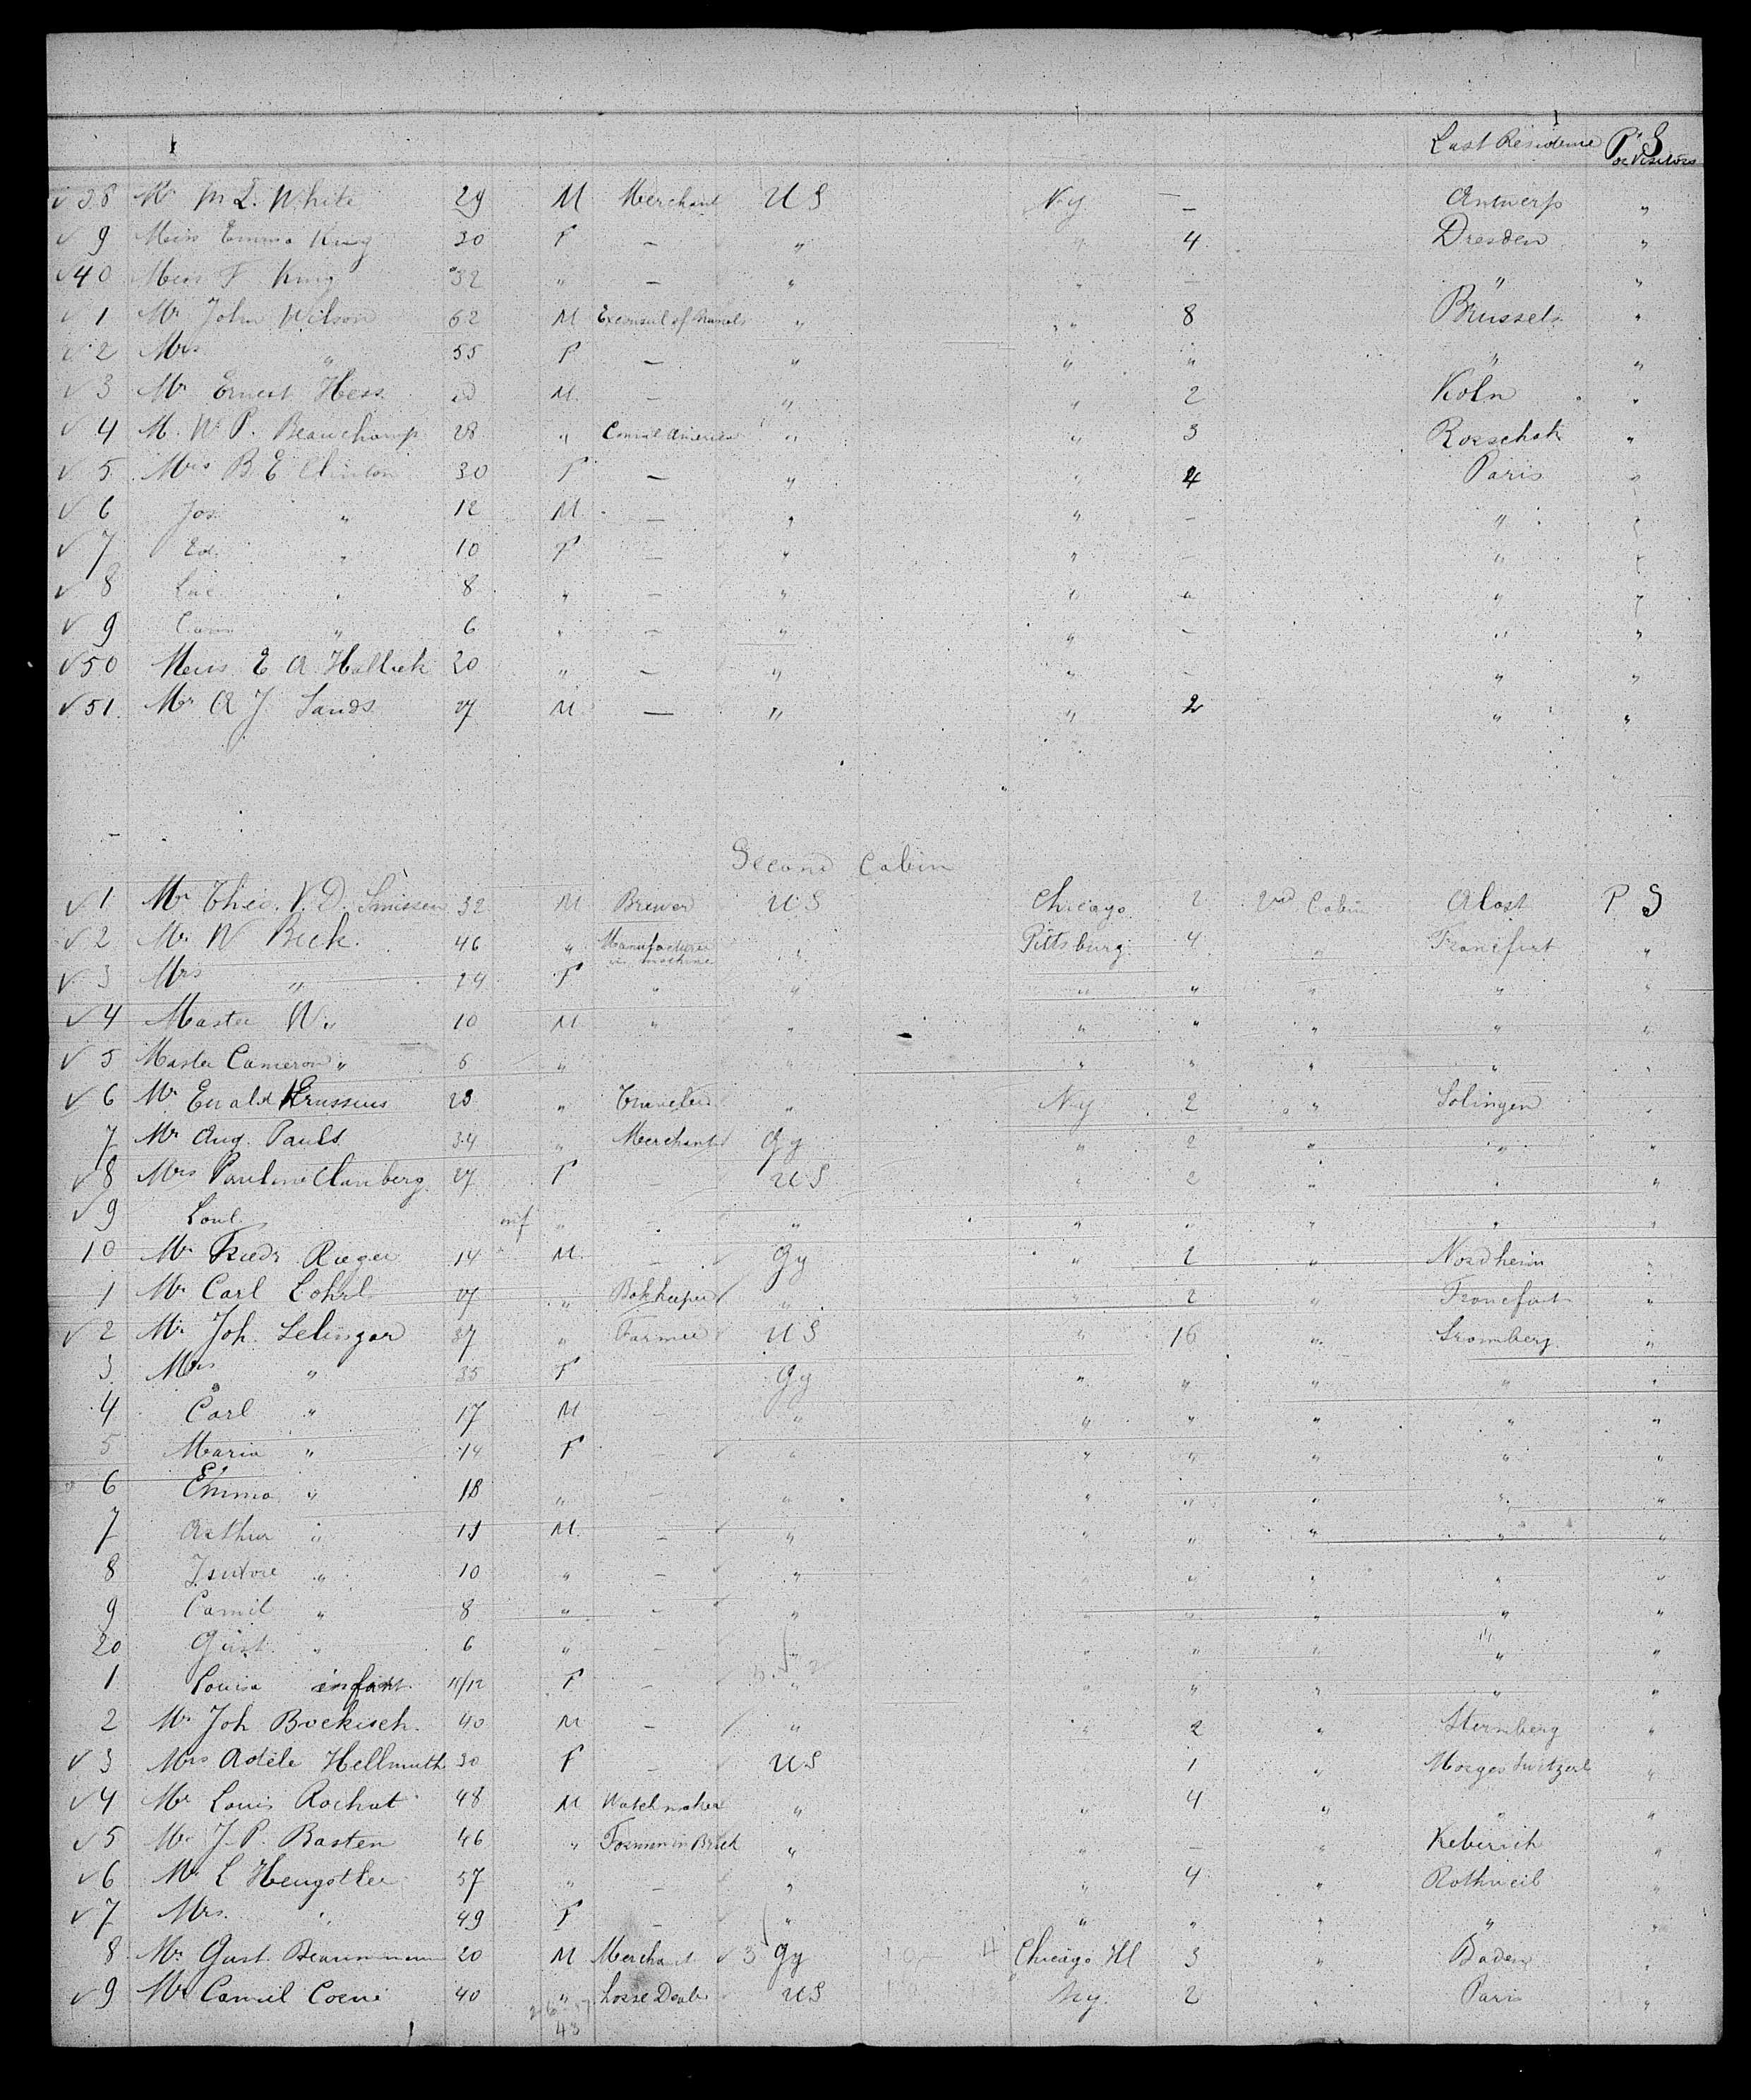 Last Residence P S
or Visitors
38 Mr M L. White 29 M Merchant U S N-y — Antwerp "
9 Miss Emma King 30 F — " " 4 Dresden "
40 Miss F King 32 " — " " — " "
1 Mr John Wilson 62 M Exconsul of Brussels " " 8 Brussels "
2 Mrs " 55 F — " " " " "
3 Mr Ernest Hess M — " " 2 Koln "
4 M. W. P. Beauchamp 28 " Consul America " " 3 Rorschak "
5 Mrs B. E Clinton 30 F — " " 4 Paris "
6 Jos " 12 M — " " — " "
7 Ed. " 10 F — " " — " "
8 Luc " 8 " — " " " " "
9 " 6 " — " " — " "
50 Miss E A Halluk 20 " — " " — " "
51. Mr A J Sands 27 M — " " 2 " "
Second Cabin
1 Mr Theo. V. D. Smissen 32 M Brewer U S Chicago 2 2nd Cabin Alost P S
2 Mr W Beck. 46 " Manufacturer in machine " Pittsburg 4 " Francfurt "
3 Mrs " 24 F " " " " " " "
4 Master W. " 10 M " " " " " " "
5 Master Cameron " 6 " " " " " " "
6 Mr Ewald Krussius 23 " Traveler " N-y 2 " Solingen "
7 Mr Aug. Pauls 34 " Merchant Gy " 2 " " "
8 Mrs Pauline Clauberg 27 F — U S " 2 " " "
9 Loul. inf " — " " " " " "
10 Mr Friedr Rieger 14 M. — Gy " 2 " Nordheim "
1 Mr Carl Lohrl 27 " Bokkeeper " " 2 " Francfurt "
2 Mr Joh. Selinger 37 " Farmer U S " 16 " Stromberg "
3 Mrs " 35 F Gy " " " " "
4 Carl " 17 M — " " " " " "
5 Maria " 14 F " " " " " "
6 Emma " 18 " — " " " " " "
7 Arthur " 11 M. — " " " " " "
8 Isidore " 10 " — " " " " " "
9 Camil " 8 " — " " " " " "
20 Gust. " 6 " — " " " " " "
1 Louisa infant 11/12 F — " " " " " "
2 Mr Joh Bockisch. 40 M — " " 2 " Sternberg "
3 Mrs Adèle Hellmuth 30 F — U S 1 " Morges Switzerl "
4 Mr Louis Rochat 48 M Watchmaker " " 4 " " "
5 Mr J. P. Basten 46 " " " — " Keberich "
6 Mr L Hengstler 57 " — " " 4 " Rothweil "
7 Mrs. " 49 F — " " " " " "
8 Mr Gust. Beaunmann 20 M Merchant 3 Gy Chicago Ill 3 " Baden "
9 Mr Camil Coené 40 " U S N-y. 2 " Paris "
43